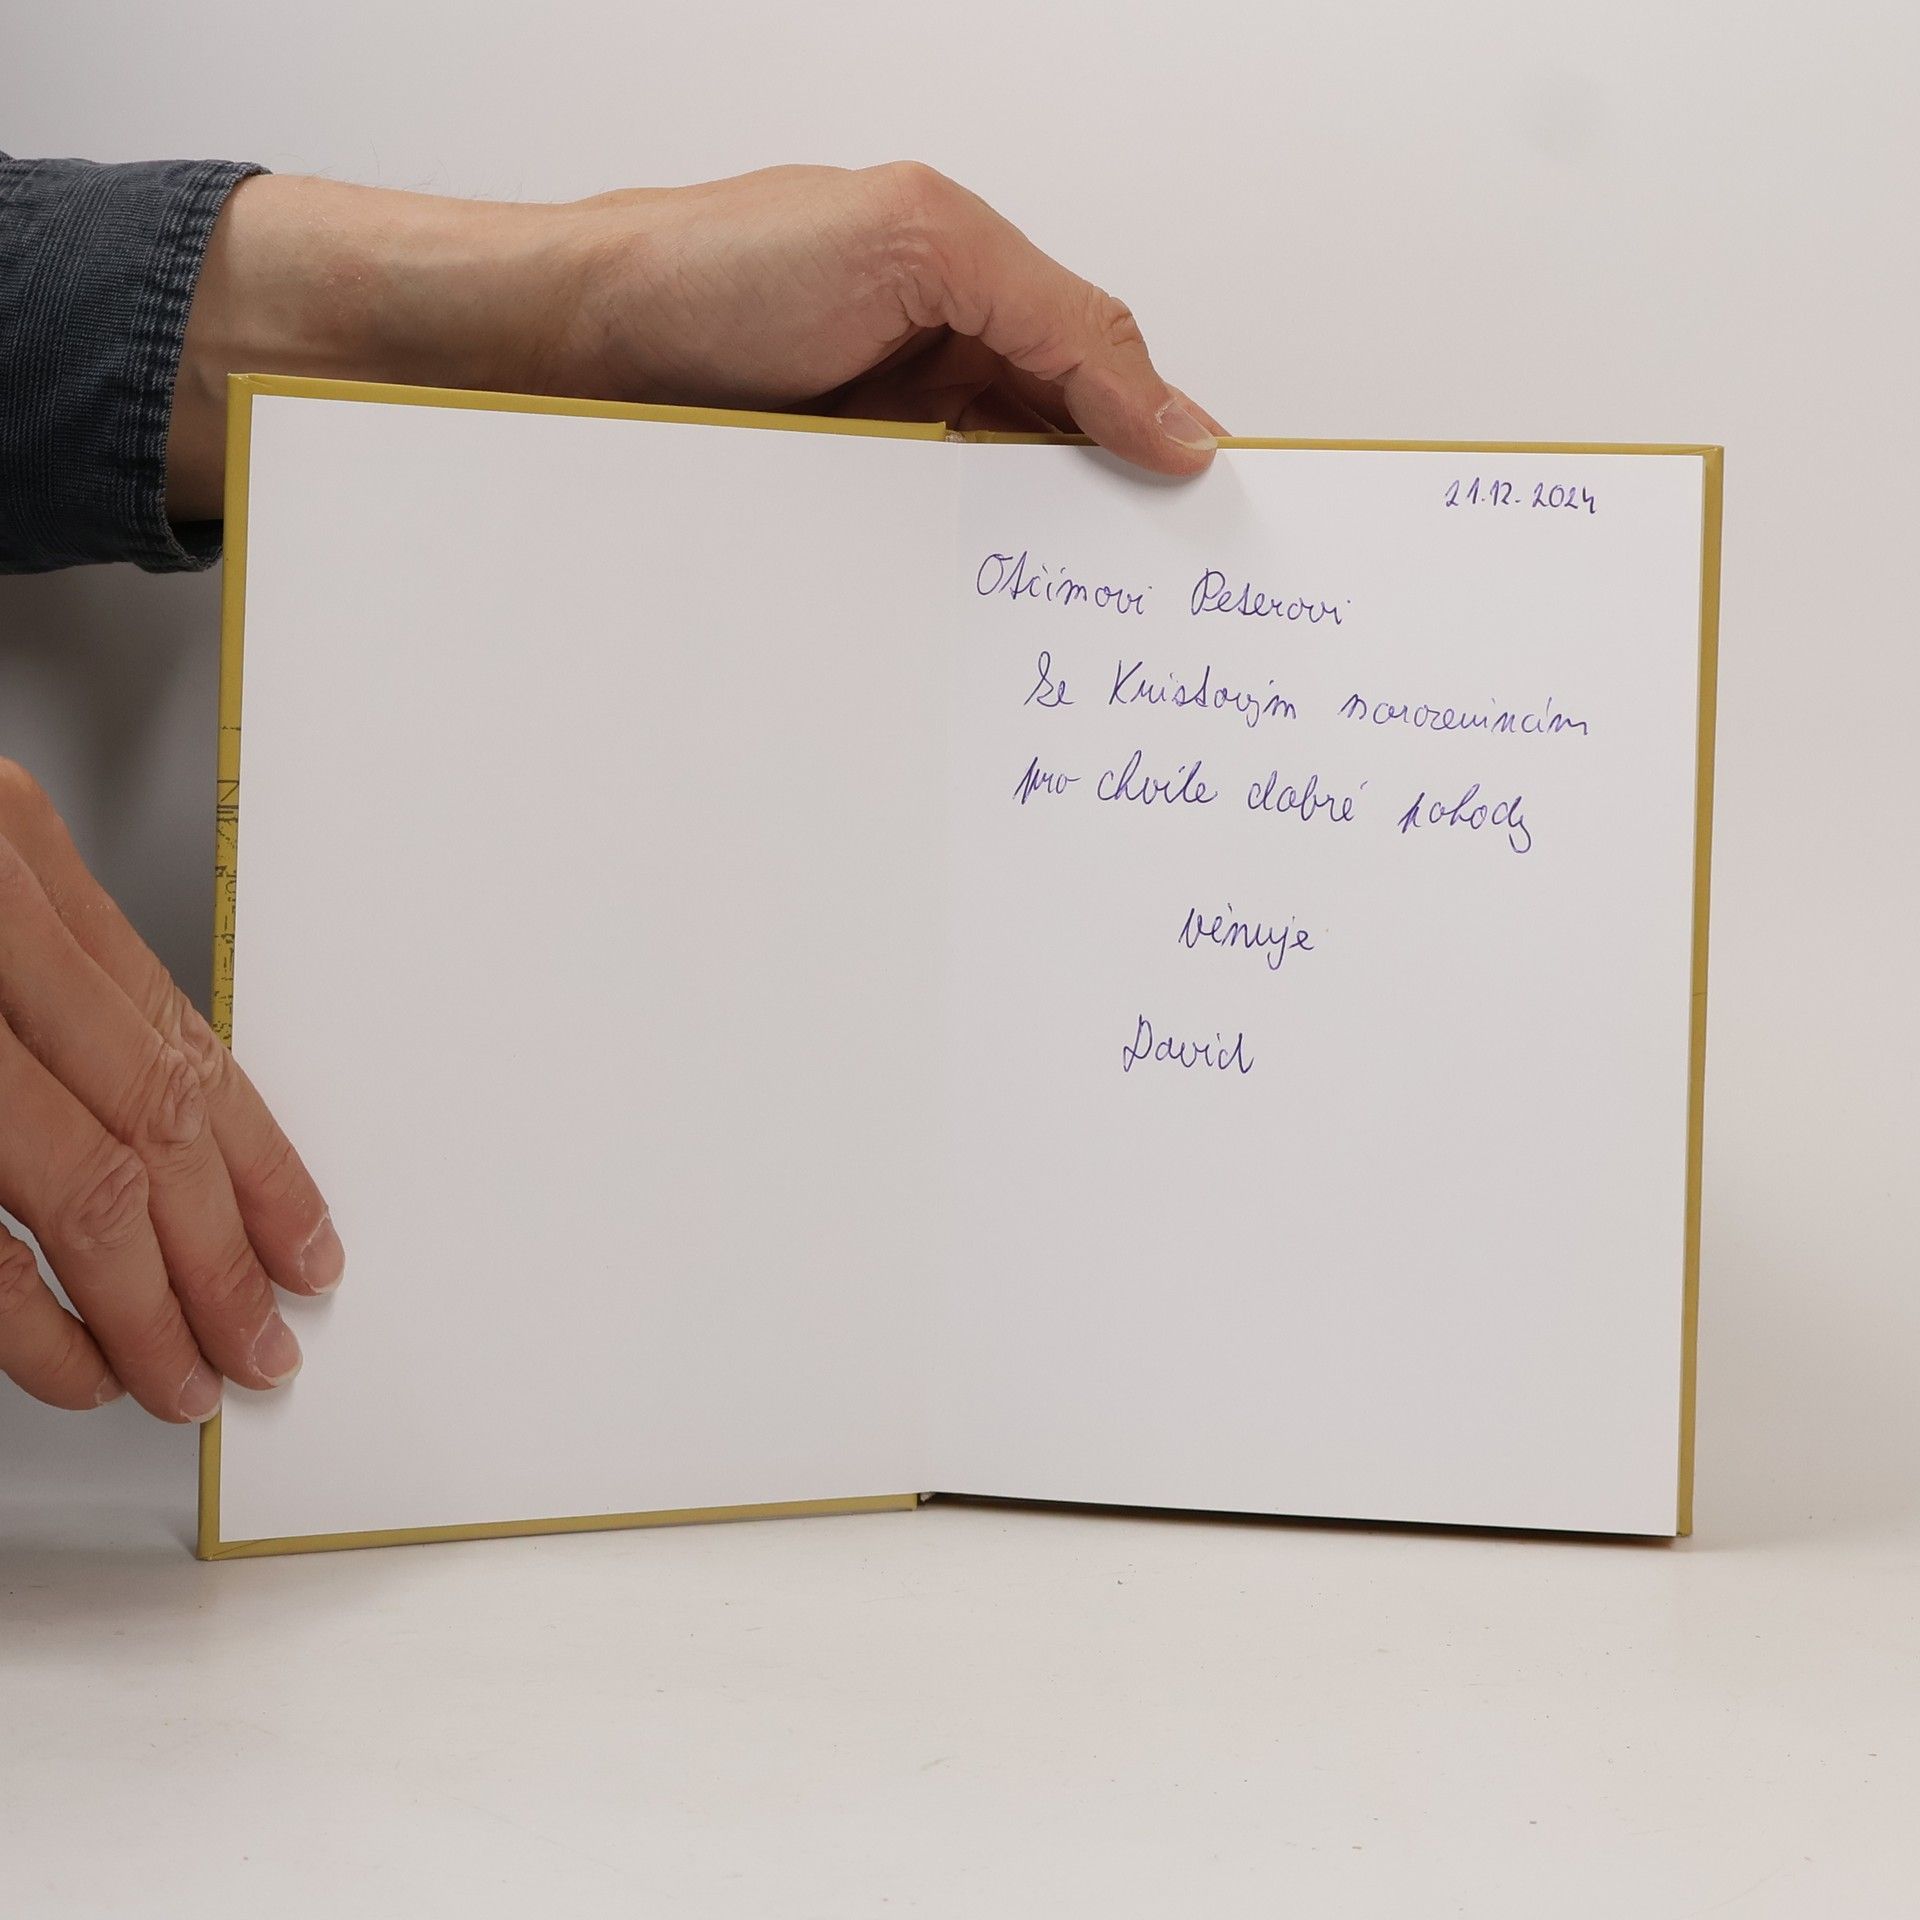 21.12.2024
Otčímovi Peterovi
ke Kristovým narozeninám
pro chvíle dobré pohody
věnuje
David